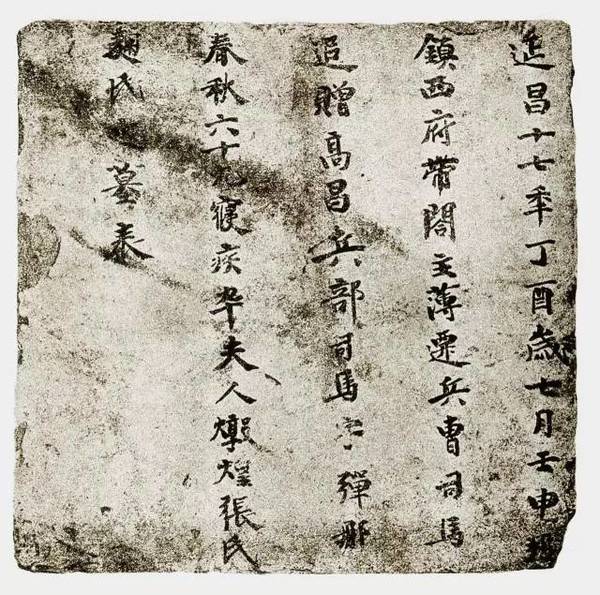 延昌十七年丁酉歲七月壬申
鎮西府帶閣主薄遷兵曹司馬
追贈高昌兵部司馬字彈那
春秋六十九寢疾卒夫人燉煌張氏
麹氏墓表